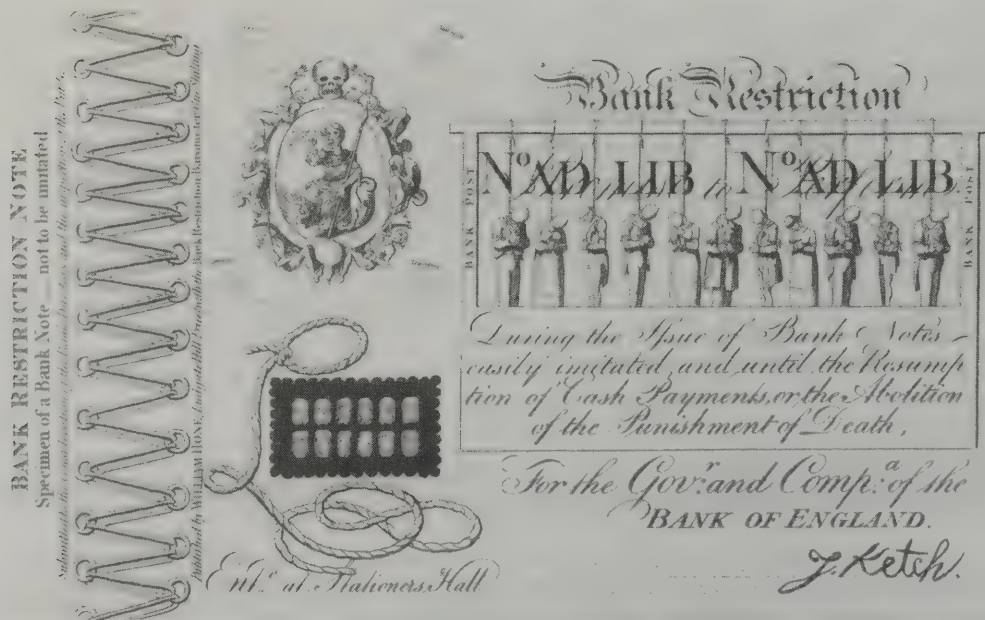 BANK RESTRICTION NOTE
Specimen of a Bank Note — not to be imitated
Submitted to the
Published by WILLIAM HONE,
Bank Restriction
BANK POST
Nº AD LIB Nº AD LIB
BANK POST
During the Issue of Bank Notes
easily imitated, and until the Resump
tion of Cash Payments, or the Abolition
of the Punishment of Death,
For the Govr. and Compa. of the
BANK OF ENGLAND.
J. Ketch.
Entd. at Stationers Hall